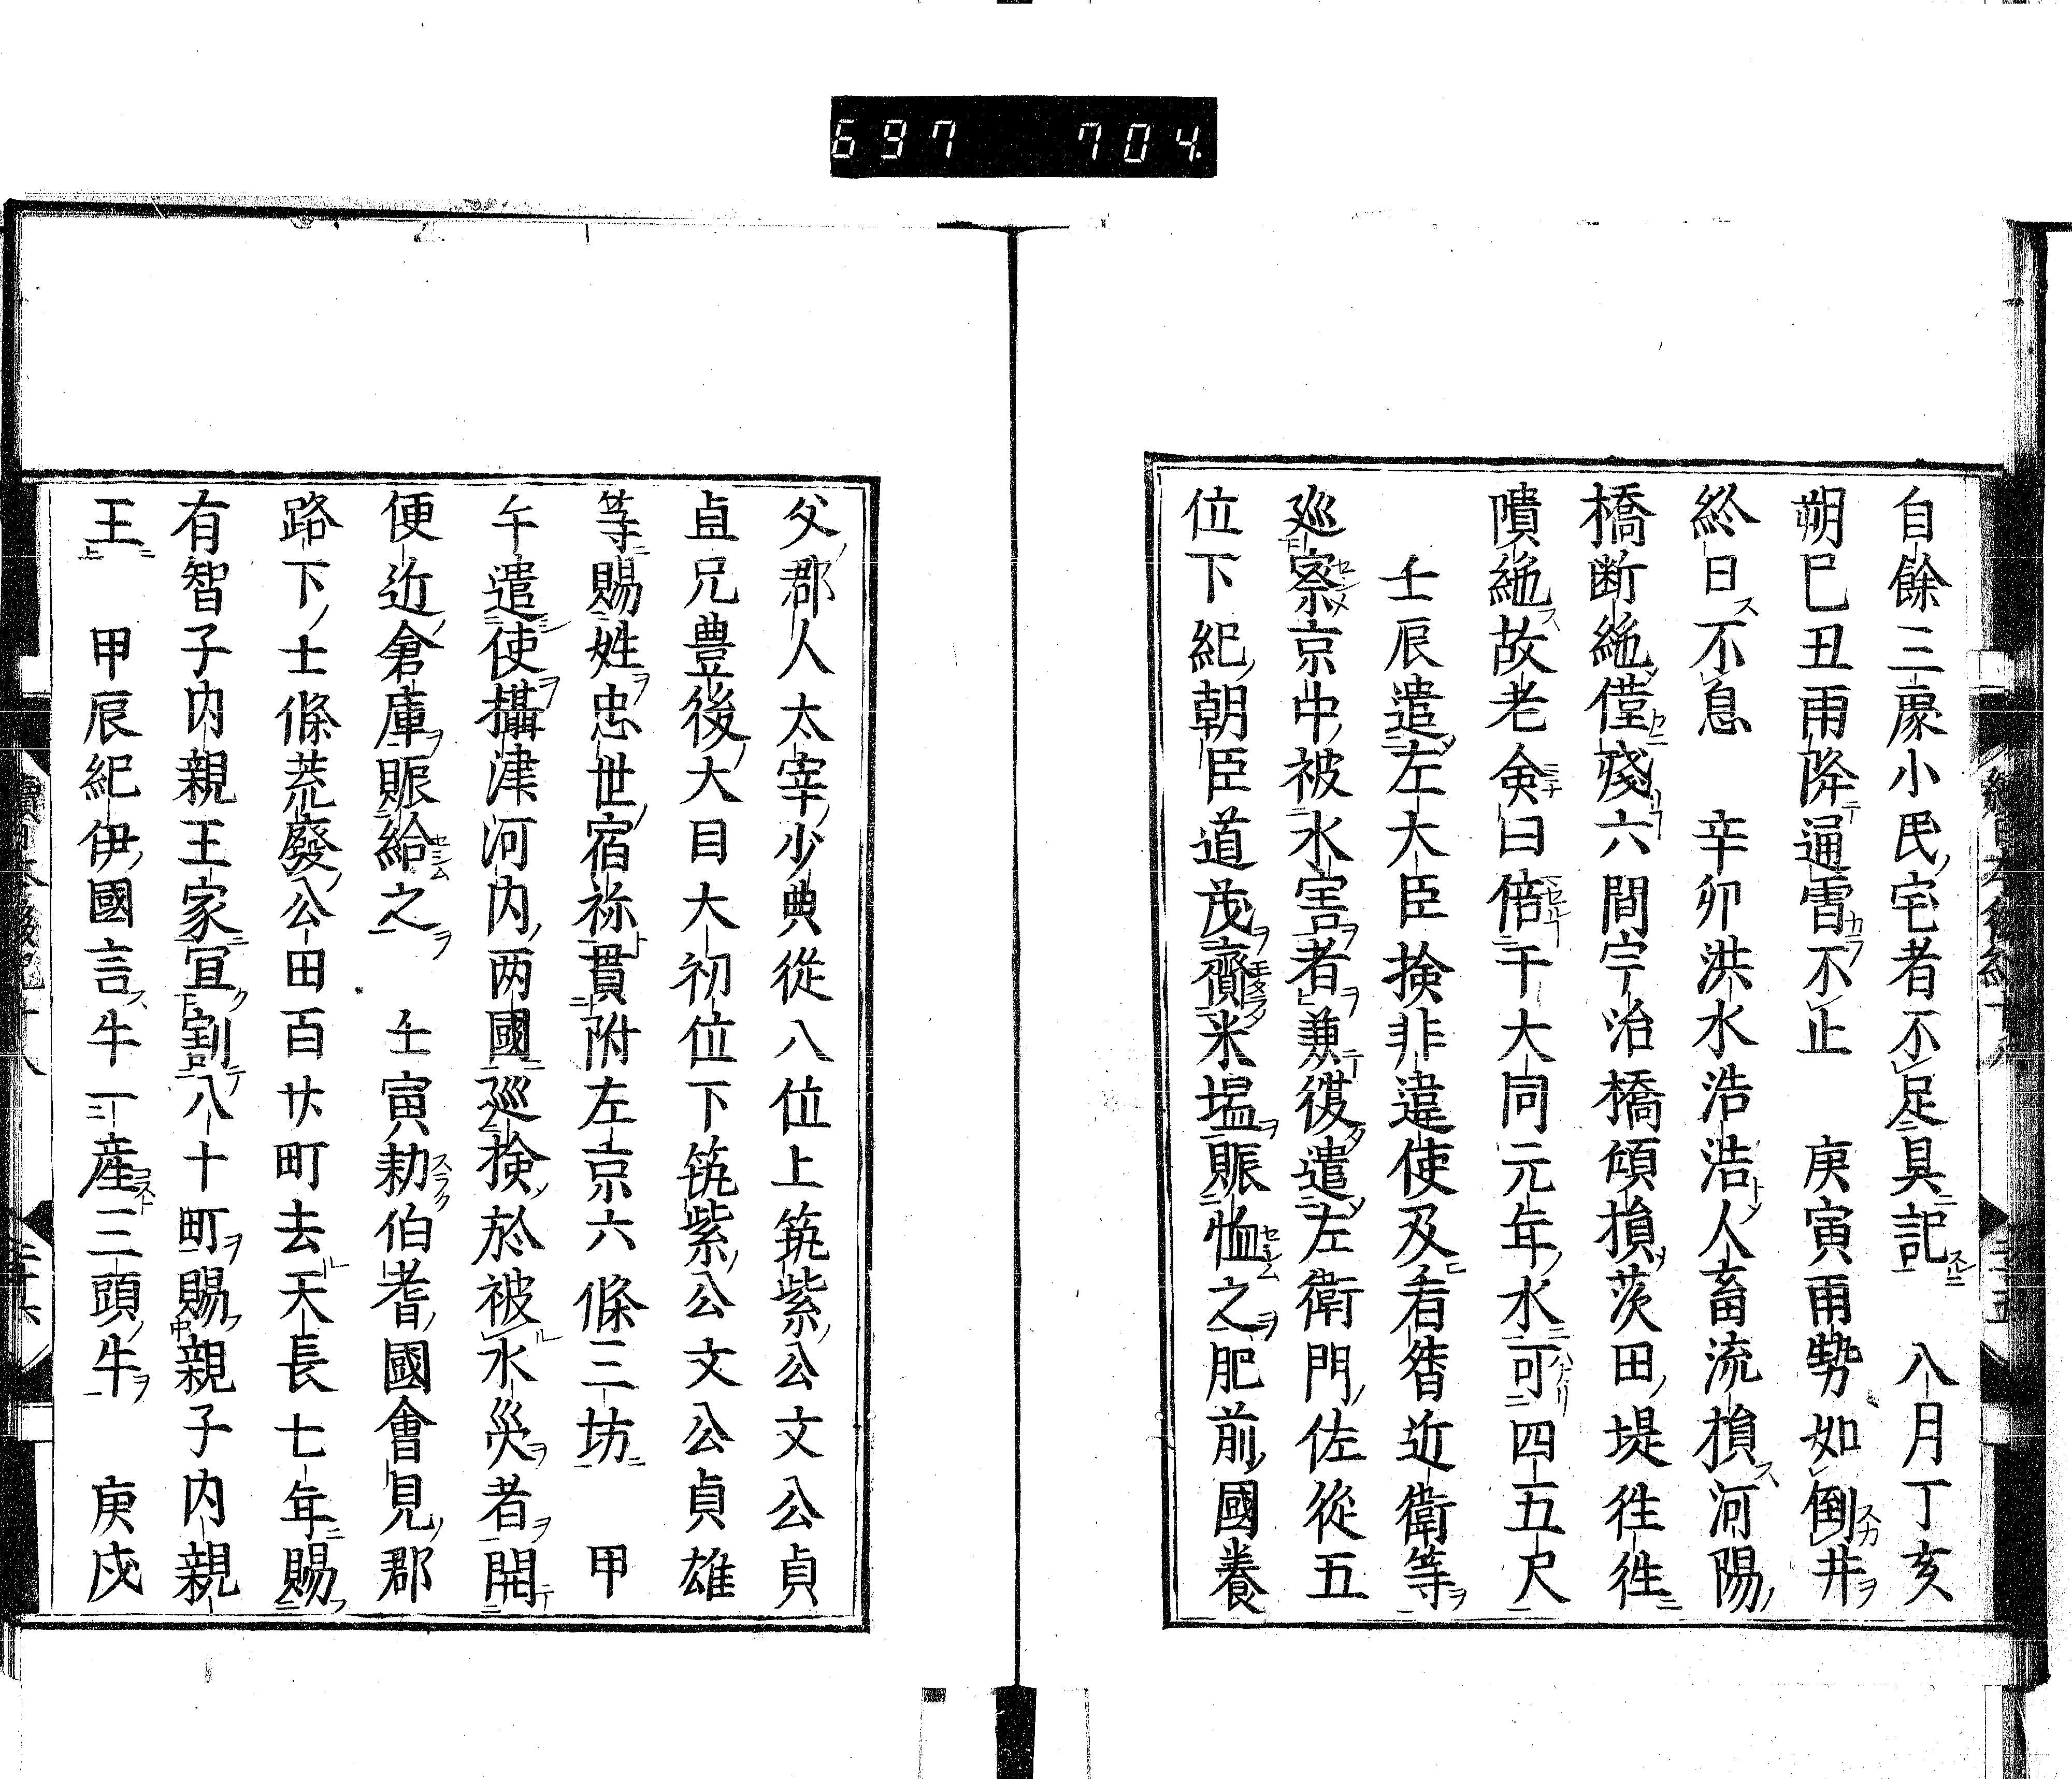 697 704
自餘三處小民宅者不足具記 八月丁亥
朔巳丑雨降通霄不止 庚寅雨勢如倒井
終日不息 辛卯洪水浩浩人畜流損河陽
橋断絶僅殘六間宇治橋傾損茨田堤徃徃
潰絶故老僉曰倍干大同元年水可四五尺
壬辰遣左大臣検非違使及看督近衛等
巡察京中被水害者兼復遣左衛門佐從五
位下紀朝臣道茂齎米塩賑恤之肥前國養
父郡人太宰少典從八位上筑紫公文公貞
直兄豊後大目大初位下筑紫公文公貞雄
等賜姓忠世宿祢貫附左京六條三坊 甲
午遣使攝津河内两國巡検於被水災者開
便近倉庫賑給之 壬寅勅伯耆國會見郡
路下士條荒廢公田百廿町去天長七年賜
有智子内親王家宜割八十町賜親子内親
王 甲辰紀伊國言牛一産三頭牛 庚戌